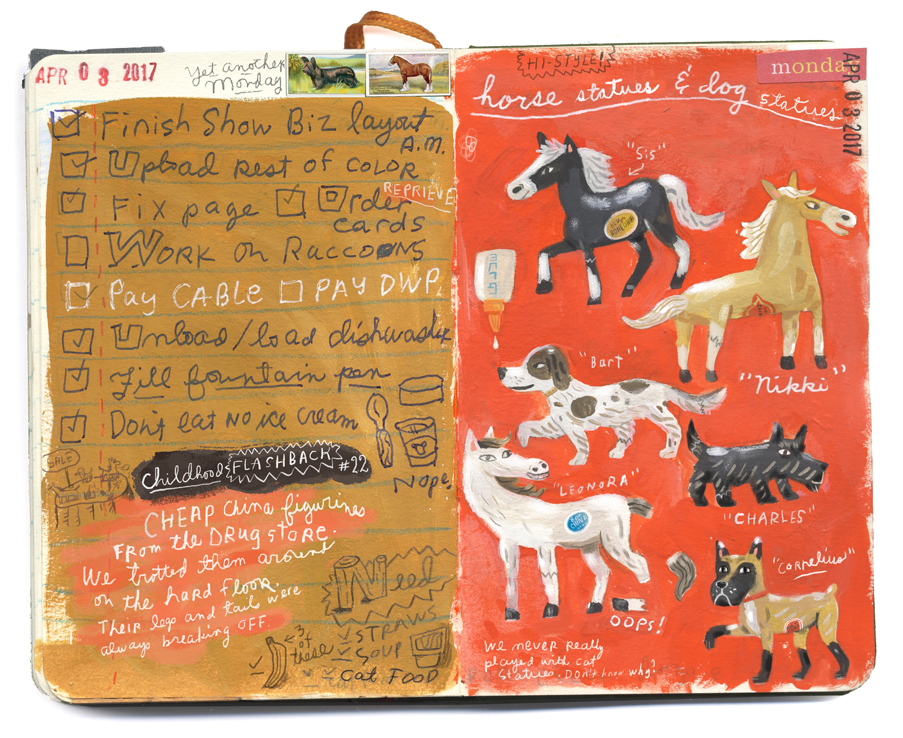 APR 03 2017
yet another
Monday
Finish Show Biz layout
A.M.
Upload rest of color
REPRIEVE
Fix page Order
cards
Work on Raccoons
Pay CABLE PAY DWP.
Unload/load dishwasher
Fill fountain pen
Don't eat no ice cream
SALE
childhood FLASHBACK #22
Nope!
CHEAP China figurines
FROM the DRUG STORE.
We trotted them around
on the hard floor.
Their legs and tails were
always breaking OFF.
Need
3 of
these
STRAWS
SOUP
Cat FOOD
HI-STYLE!
monda
APR 03 2017
horse statues & dog statues
"Sis"
"Nikki"
"Bart"
"LEONORA"
"CHARLES"
"Cornelius"
OOPS!
We never really
played with cat
statues. Don't know why?